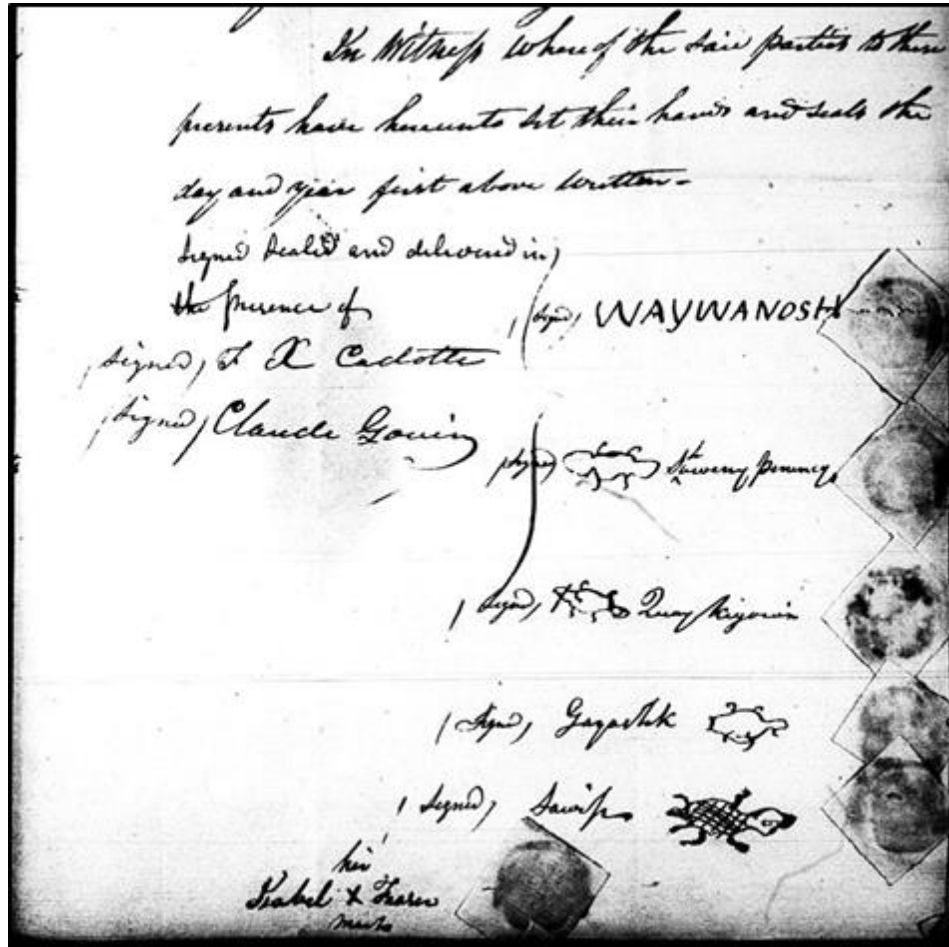 In Witness whereof the said parties to these
presents have hereunto set their hands and seals the
day and year first above written -
Signed Sealed and delivered in
the presence of
(signed) WAYWANOSH
(signed) F X Cadotte
(signed) Claude Gouin
(signed)
(signed) Quay Kigowin
(signed) Gayashk
(signed) Sawiss
her
Isabel X
mark